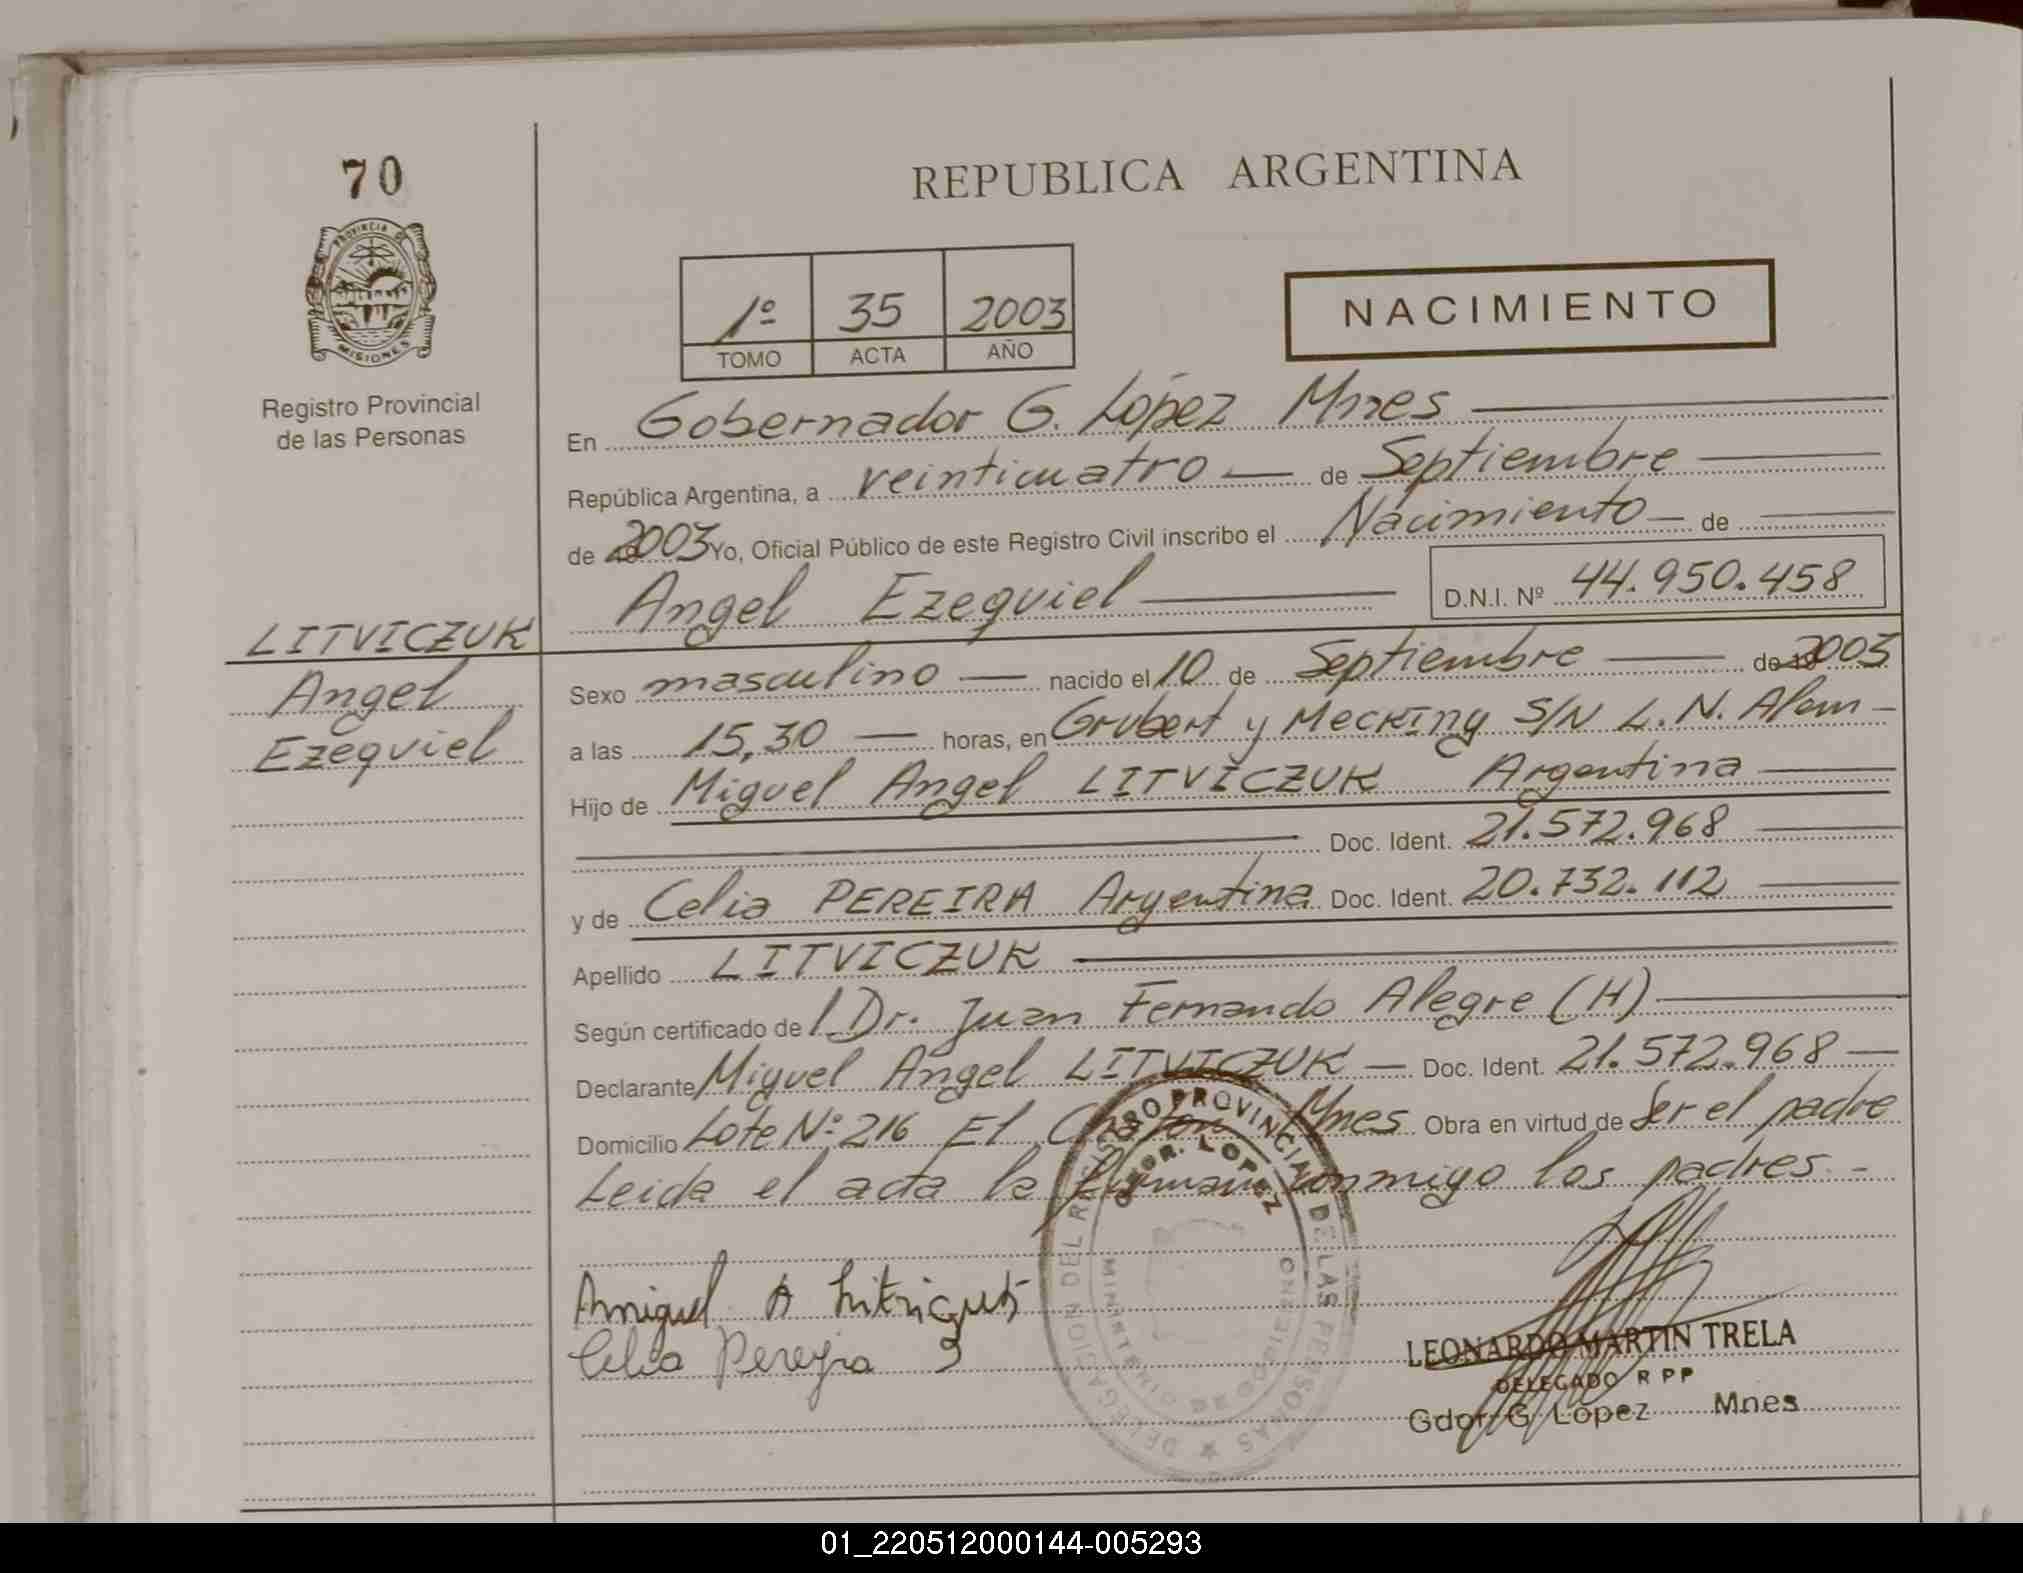 70
REPUBLICA ARGENTINA
PROVINCIA DE
MISIONES
Registro Provincial
de las Personas
1º 35 2003
TOMO ACTA AÑO
NACIMIENTO
En Gobernador G. López Mnes
República Argentina, a veinticuatro de Septiembre
de 2003 Yo, Oficial Público de este Registro Civil inscribo el Nacimiento de
Angel Ezequiel D.N.I. Nº 44.950.458
LITVICZUK
Angel
Ezequiel
Sexo masculino nacido el 10 de Septiembre de 19 2003
a las 15,30 horas, en Grubert y Mecking S/N L. N. Alem
Hijo de Miguel Angel LITVICZUK Argentina
Doc. Ident. 21.572.968
y de Celia PEREIRA Argentina Doc. Ident. 20.732.112
Apellido LITVICZUK
Según certificado de Dr. Juan Fernando Alegre (H)
Declarante Miguel Angel LITVICZUK Doc. Ident. 21.572.968
Domicilio Lote Nº 216 El Mnes Obra en virtud de Ser el padre
Leida el acta la firman conmigo los padres.-
DELEGACION DEL REGISTRO PROVINCIAL DE LAS PERSONAS
GDOR. LOPEZ
MINISTERIO DE GOBIERNO
Celia Pereyra
LEONARDO MARTIN TRELA
DELEGADO R P P
Gdor G. López Mnes
01_220512000144-005293